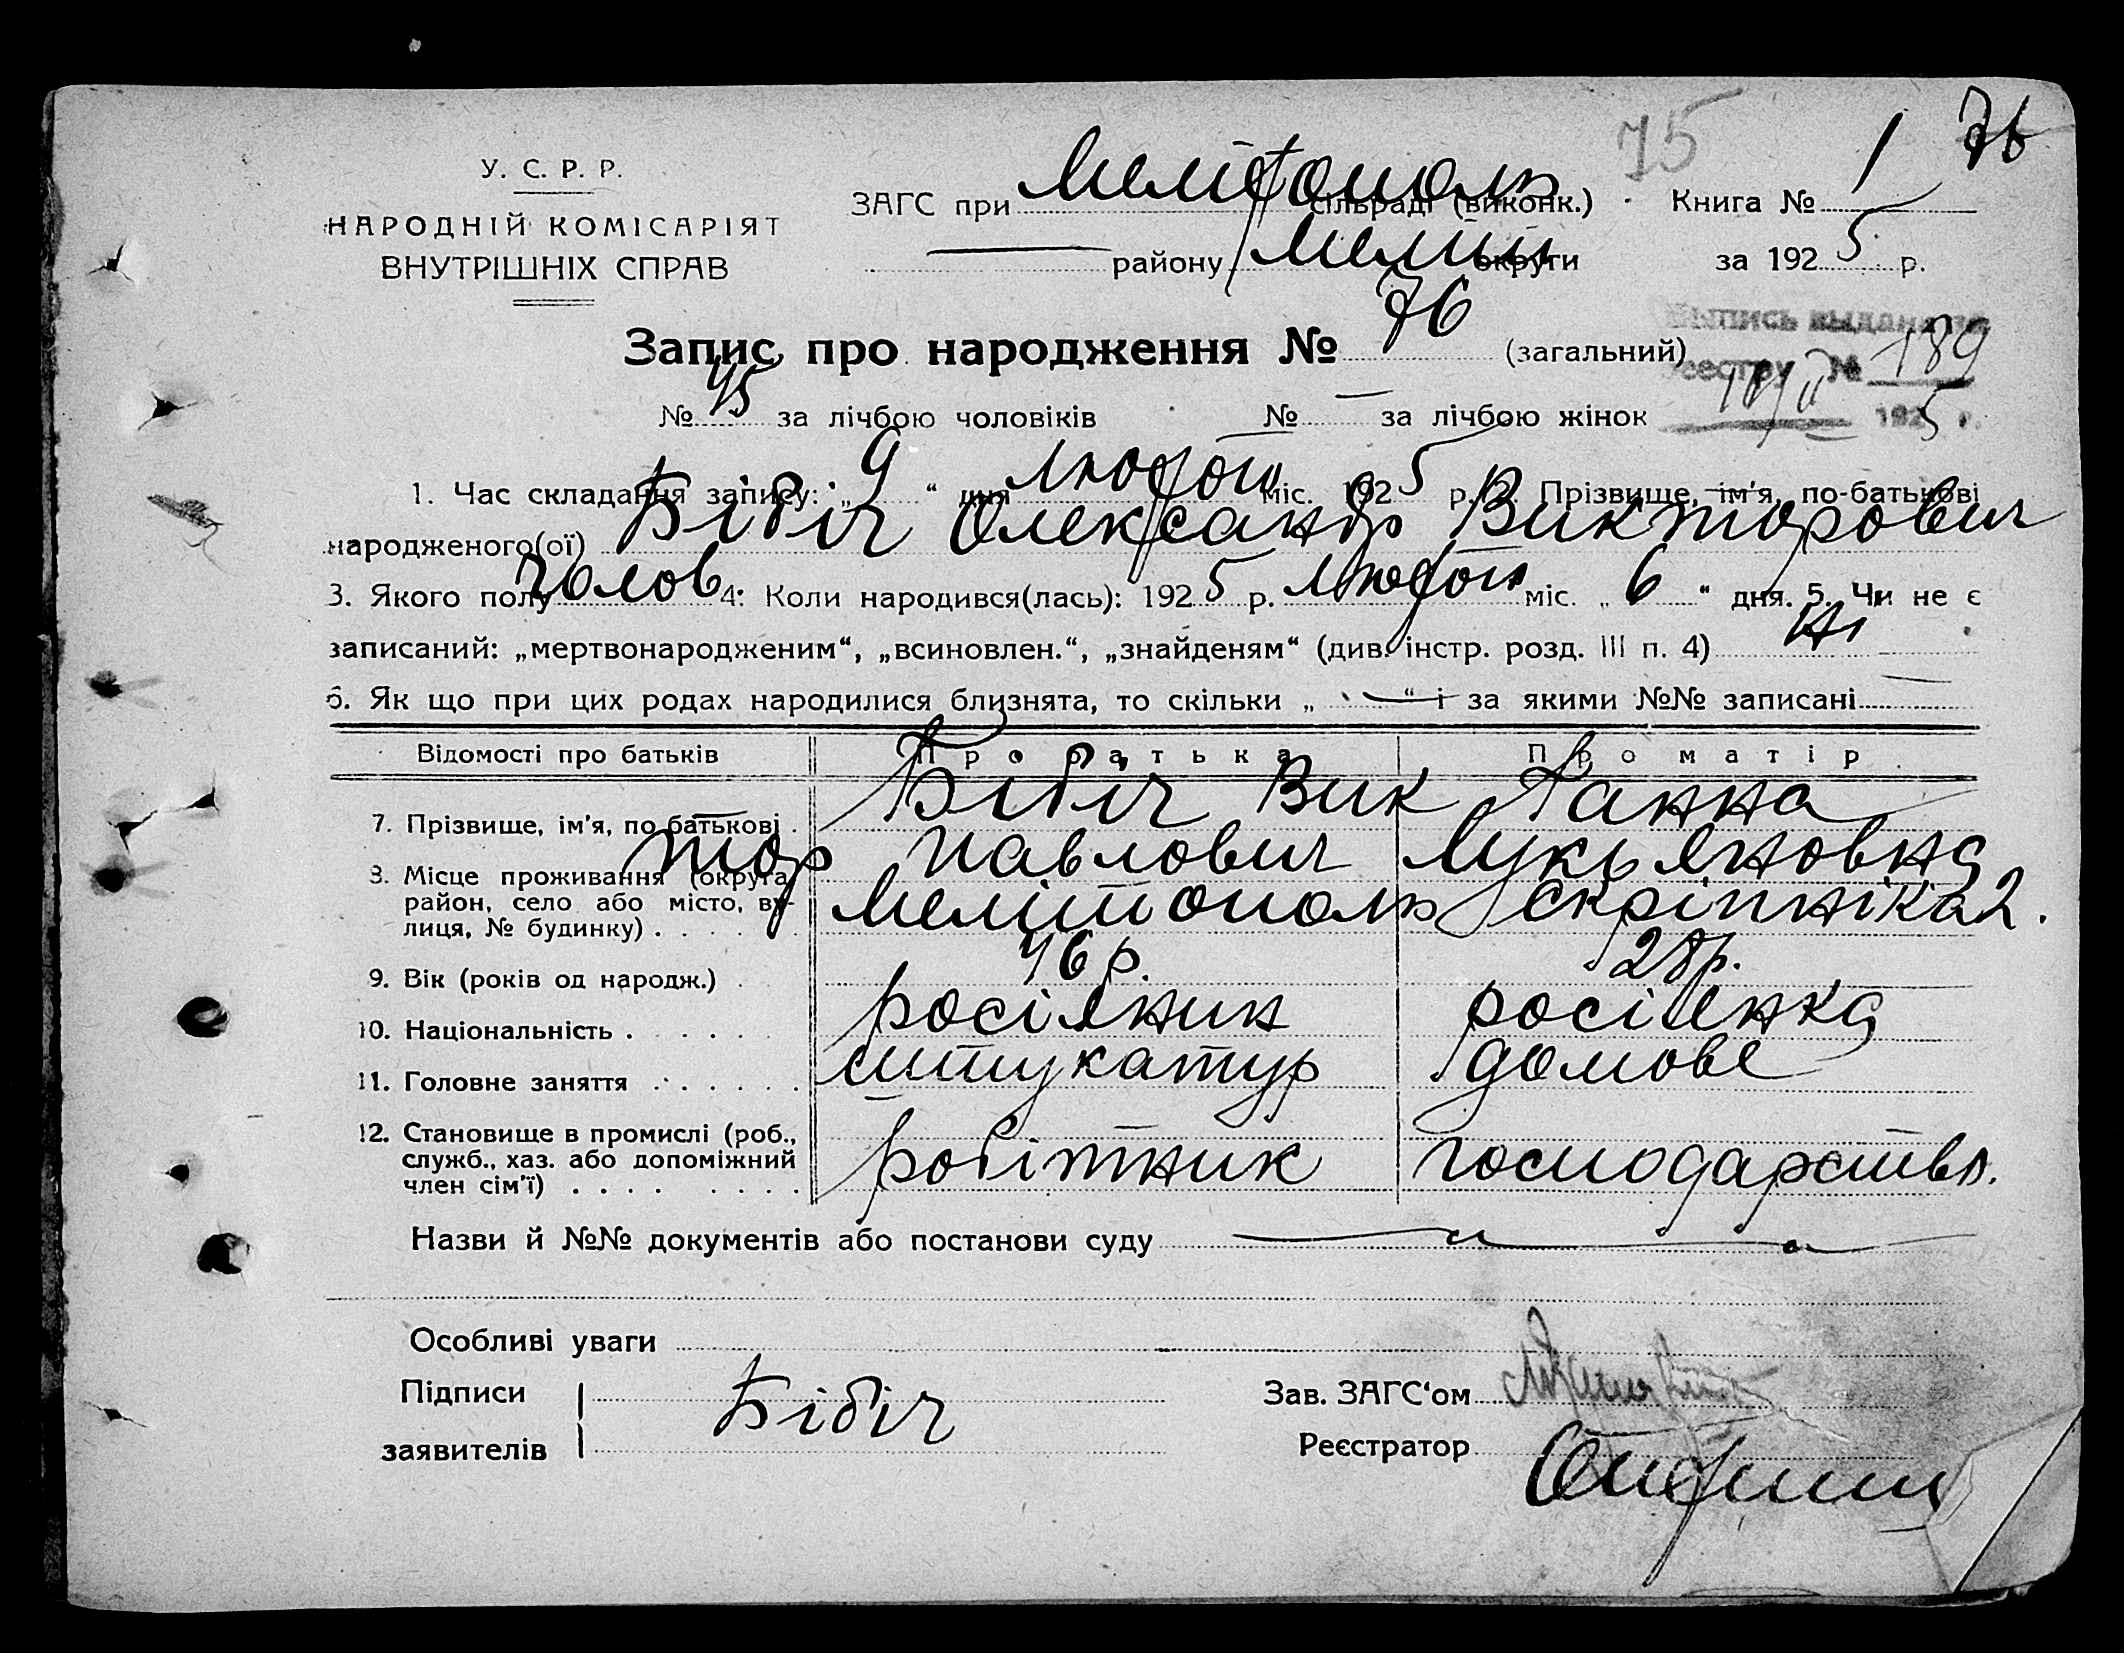 75 1 76
У. С. Р. Р.
НАРОДНІЙ КОМІСАРІЯТ
ВНУТРІШНІХ СПРАВ
ЗАГС при Мелітополь сільраді (виконк.) Книга №
району Мелит округи за 1925 р.
Выпись выдана по
реестру № 189
1925 г.
Запис про народження № 76 (загальний)
№ 45 за лічбою чоловіків № — за лічбою жінок
1. Час складання запису: „ 9 “ дня лютого міс. 1925 р. 2. Прізвище, ім'я, по-батькові
народженого(ої) Бібіч Олександр Викторович
3. Якого полу чолов 4. Коли народився(лась): 1925 р. лютого міс. „ 6 “ дня. 5. Чи не є
записаний: „мертвонародженим“, „всиновлен.“, „знайденям“ (див. інстр. розд. III п. 4) ні
6. Як що при цих родах народилися близнята, то скільки „ — “ і за якими №№ записані —
Відомості про батьків Про батька Про матір
7. Прізвище, ім'я, по батькові Бібіч Вик Ганна
тор Павлович Лукьяновна
8. Місце проживання (округа,
район, село або місто, ву-
лиця, № будинку) Мелітополь Скріпніка 2.
9. Вік (років од народж.) 46 р. 28 р.
10. Національність росіянин росіянка
11. Головне заняття штукатур домове
12. Становище в промислі (роб.,
служб., хаз. або допоміжний
член сім'ї) робітник господарство.
Назви й №№ документів або постанови суду
Особливі уваги
Підписи
заявителів Бібіч
Зав. ЗАГС'ом
Реєстратор